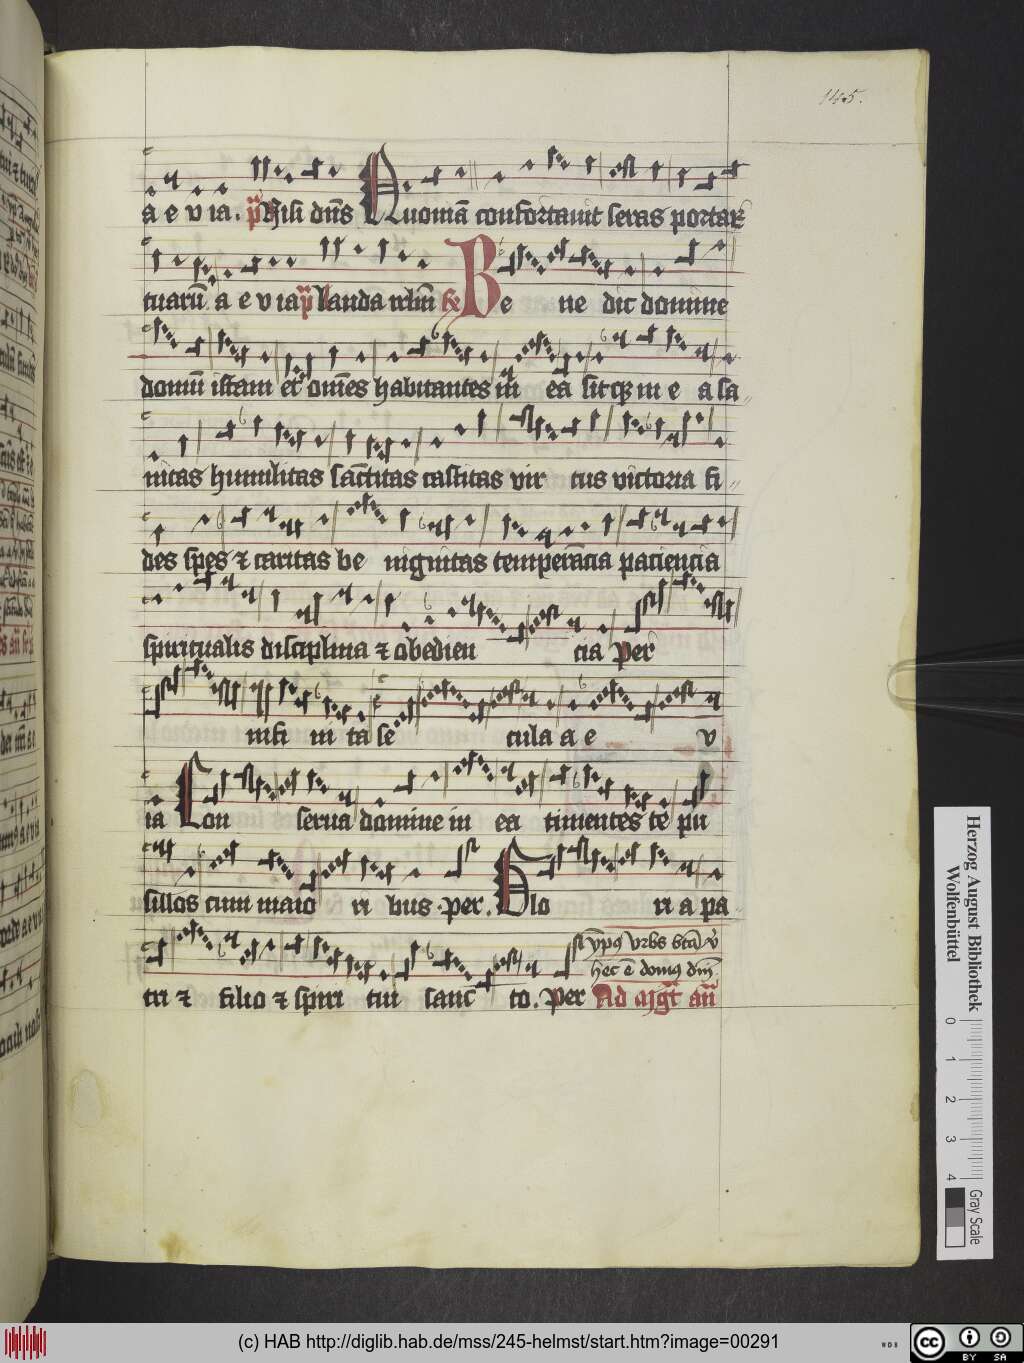 145.
a e v ia. p̄s Nisi dn̄s Quoniā confortauit seras portaꝝ
tuarū a e v ia p̄s lauda irlm̄ R Be ne dic domine
domū istam et om̄es habitantes in ea sit qz in e a sa
nitas humilitas sanctitas castitas vir tus victoria fi
des spes ⁊ caritas be nignitas temperācia paciencia
spiritualis disciplina ⁊ obedien cia Per
infi ni ta se cula a e v
ia Con serua domine in ea timentes te pu
sillos cum maio ri bus .per. Glo ri a pa
tri ⁊ filio ⁊ spiri tui sanc to. per Ad mgt̄ an̄
vrbs btā
hec ē domꝰ dn̄i
Herzog August Bibliothek
Wolfenbüttel
0 1 2 3 4
Gray Scale
(c) HAB http://diglib.hab.de/mss/245-helmst/start.htm?image=00291
WDB
cc BY SA